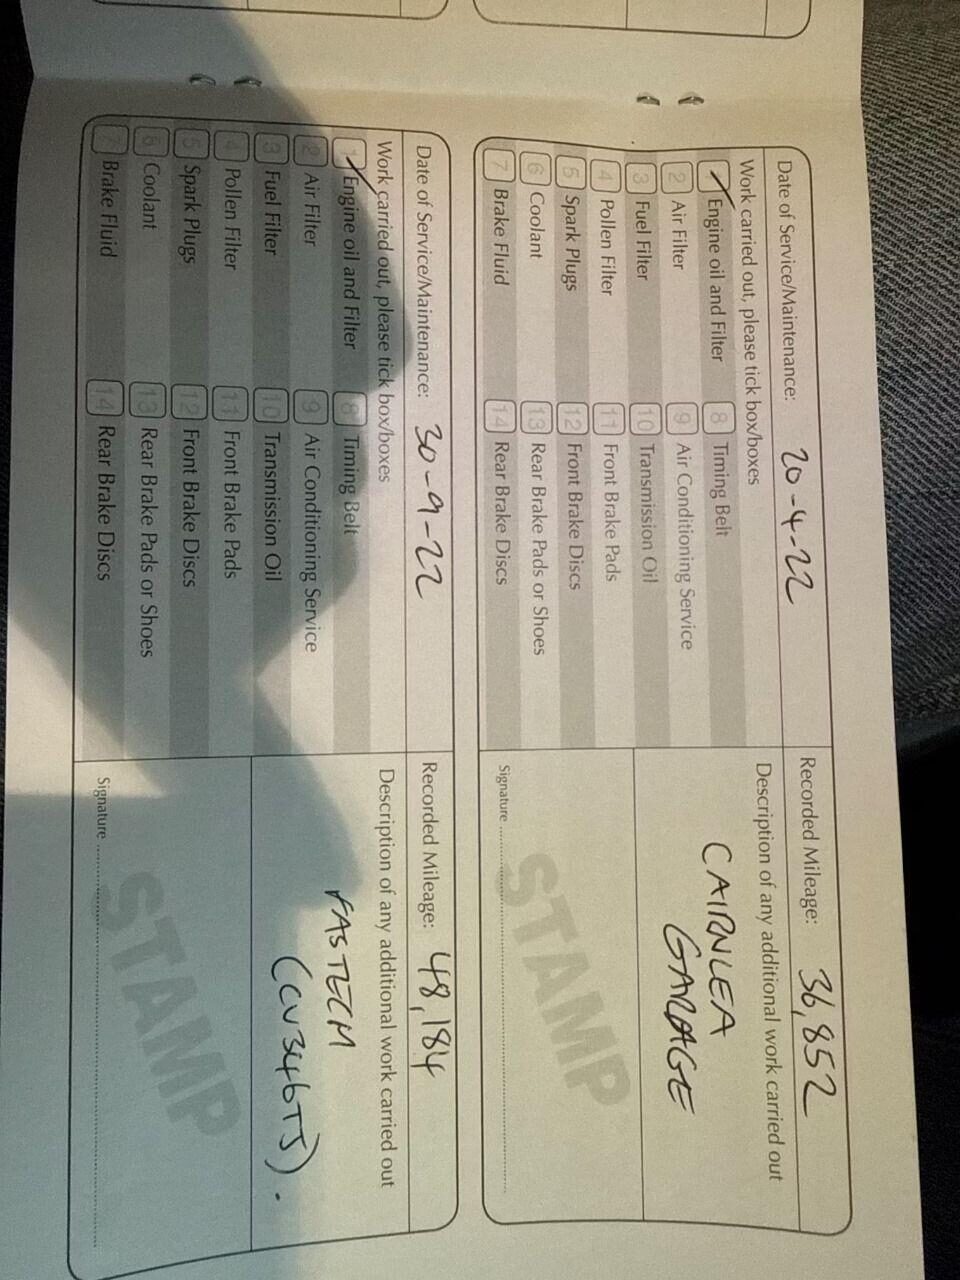 Date of Service/Maintenance: 20-4-22
Recorded Mileage: 36,852
Work carried out, please tick box/boxes
Description of any additional work carried out
1 Engine oil and Filter
8 Timing Belt
2 Air Filter
9 Air Conditioning Service
3 Fuel Filter
10 Transmission Oil
4 Pollen Filter
11 Front Brake Pads
5 Spark Plugs
12 Front Brake Discs
6 Coolant
13 Rear Brake Pads or Shoes
7 Brake Fluid
14 Rear Brake Discs
CAIRNLEA
GARAGE
STAMP
Signature
Date of Service/Maintenance: 30-9-22
Recorded Mileage: 48,184
Work carried out, please tick box/boxes
Description of any additional work carried out
1 Engine oil and Filter
8 Timing Belt
2 Air Filter
9 Air Conditioning Service
3 Fuel Filter
10 Transmission Oil
4 Pollen Filter
11 Front Brake Pads
5 Spark Plugs
12 Front Brake Discs
6 Coolant
13 Rear Brake Pads or Shoes
7 Brake Fluid
14 Rear Brake Discs
FASTECH
(CV346TJ).
STAMP
Signature